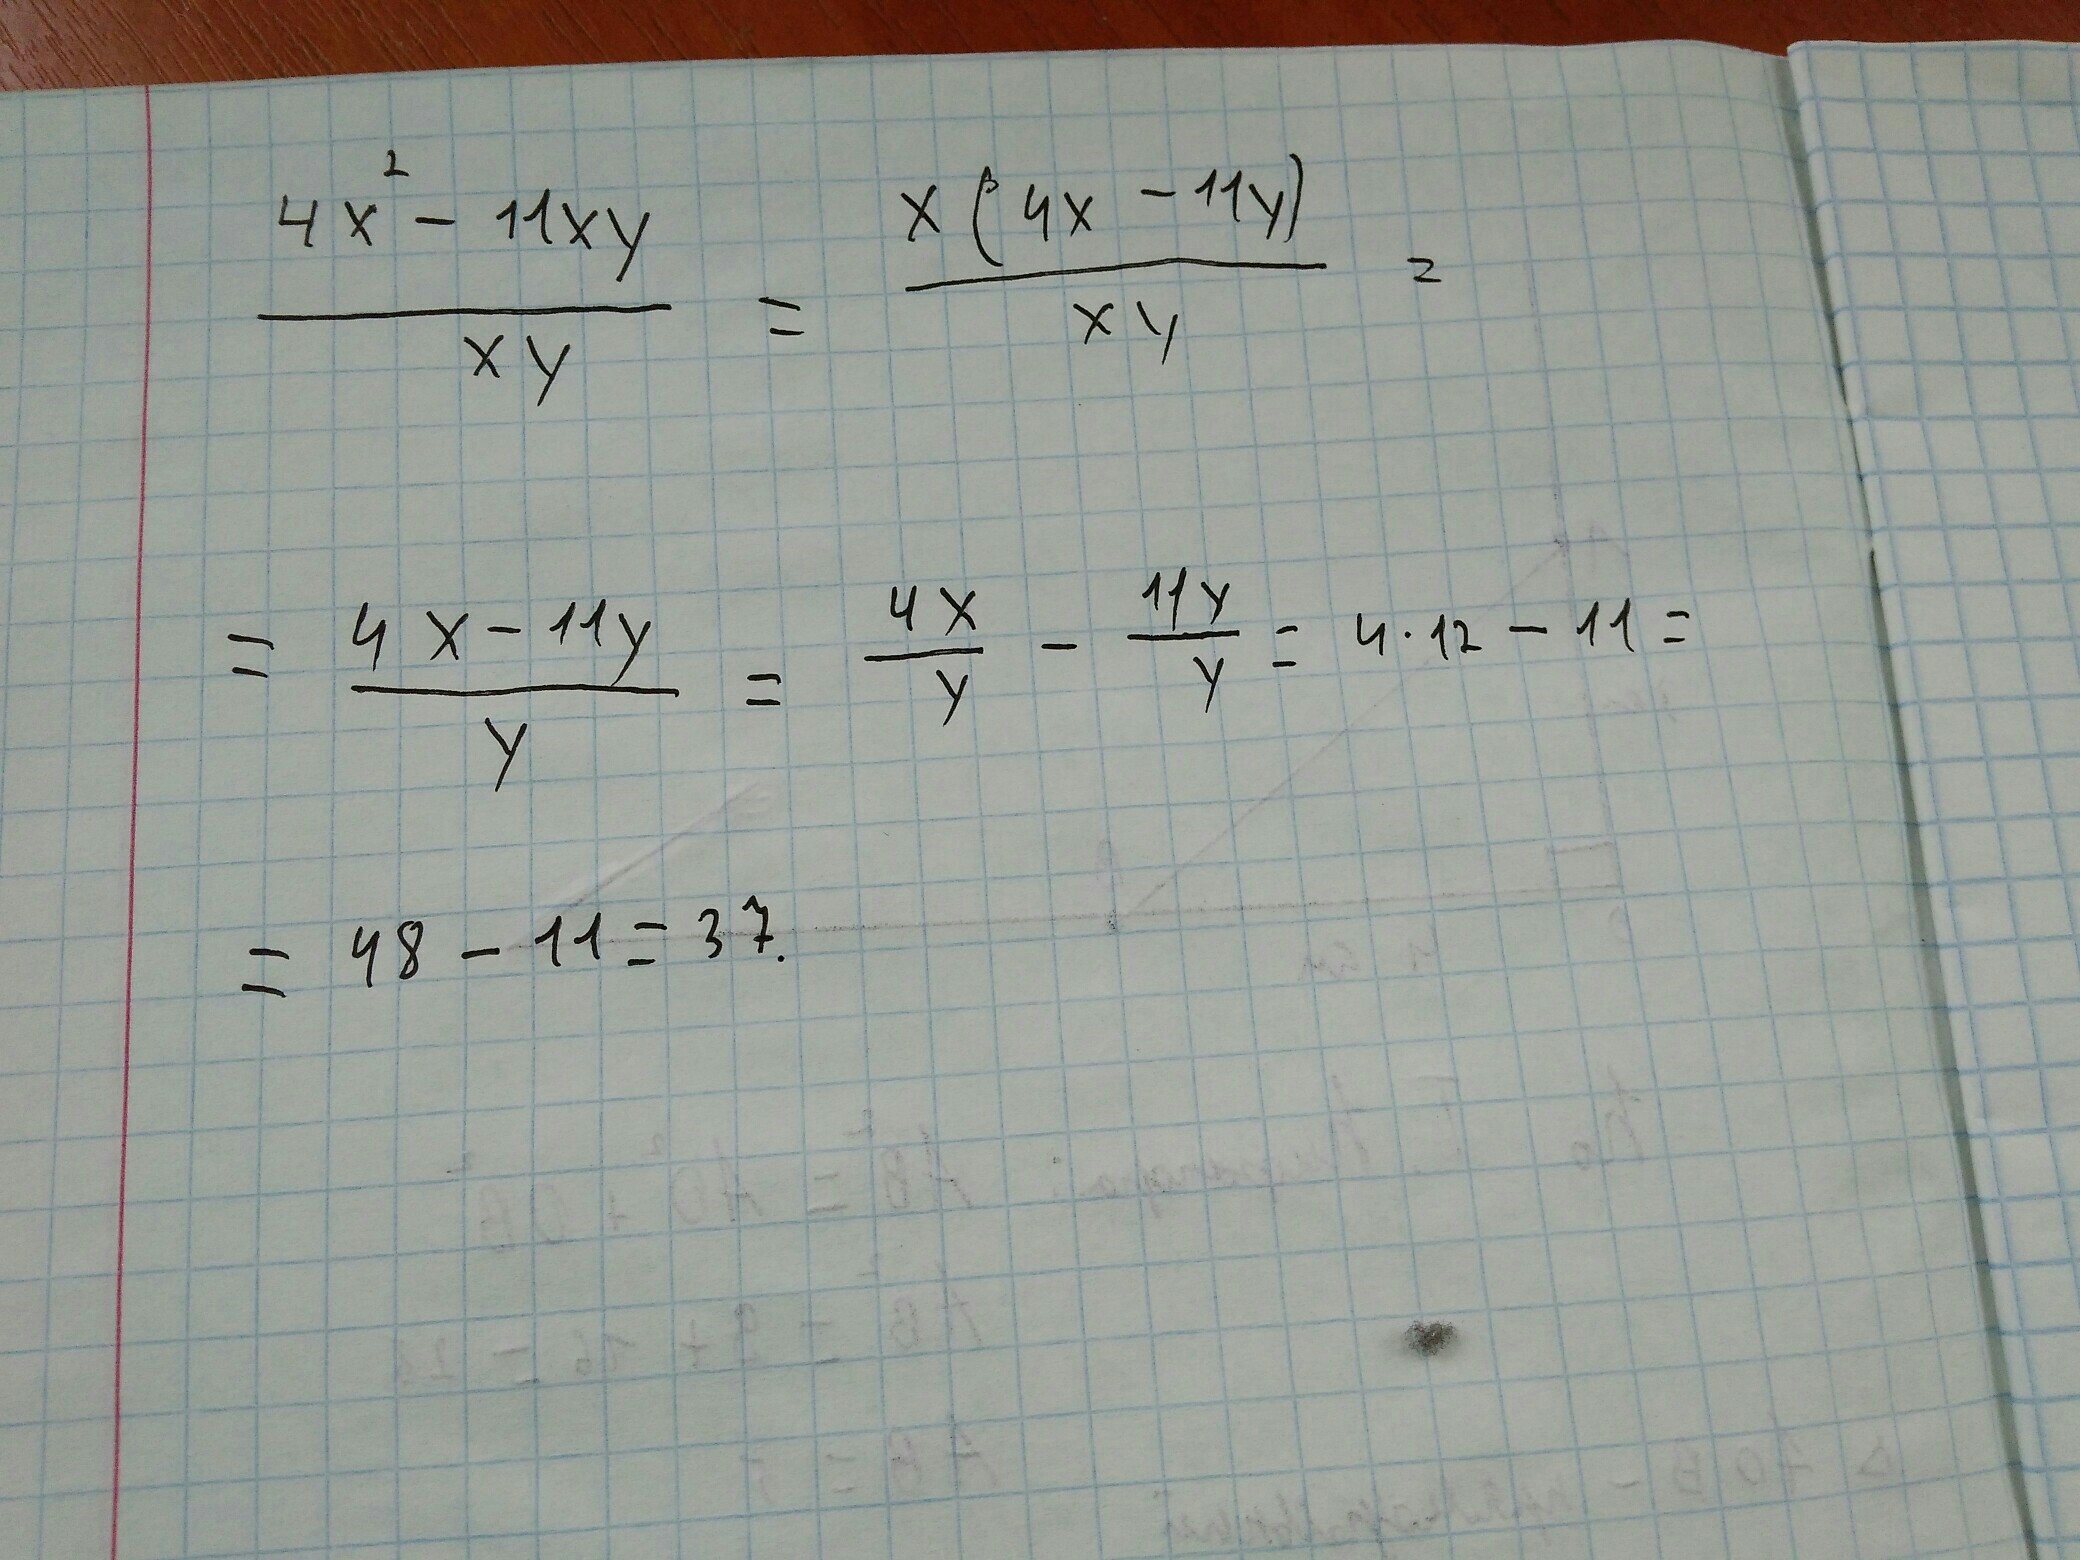 (4x² - 11xy)/(xy) = (x(4x - 11y))/(xy) =
= (4x - 11y)/y = 4x/y - 11y/y = 4·12 - 11 =
= 48 - 11 = 37.